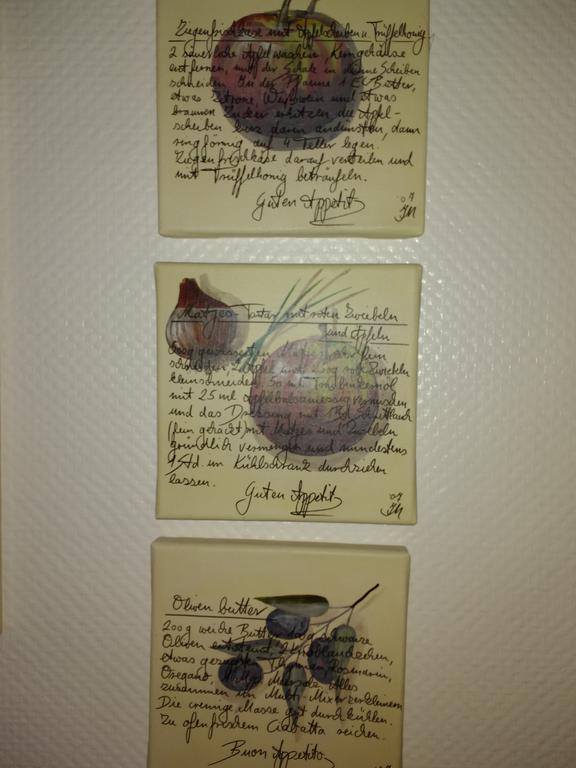 Ziegenfrischkäse mit Apfelscheiben u. Trüffelhonig
2 säuerliche Äpfel waschen, Kerngehäuse
entfernen, mit der Schale in dünne Scheiben
schneiden. In der Pfanne 1 EL Butter,
etwas Zitrone, Weißwein und etwas
braunen Zucker erhitzen die Apfel-
scheiben kurz darin andünsten, dann
ringförmig auf 4 Teller legen.
Ziegenfrischkäse darauf verteilen und
mit Trüffelhonig beträufeln.
Guten Appetit
07
Matjes-Tartar mit roten Zwiebeln
und Äpfeln
fein
schneiden 2 Äpfel und 200g rote Zwiebeln
kleinschneiden. 50 ml
mit 25 ml Apfelbalsamessig vermischen
und das Dressing mit Schnittlauch
(fein gehackt) mit Matjes und Zwiebeln
gründlich vermengen und mindestens
1 Std. im Kühlschrank durchziehen
lassen.
Guten Appetit
07
Oliven butter
200g weiche Butter 120g schwarze
Oliven entsteint, 2 Knoblauchzehen,
etwas Thymian, Rosmarin,
Oregano, Alles
zusammen im Multi-Mixer zerkleinern
Die cremige Masse gut durchkühlen.
Zu ofenfrischem Ciabatta reichen.
Buon Appetito